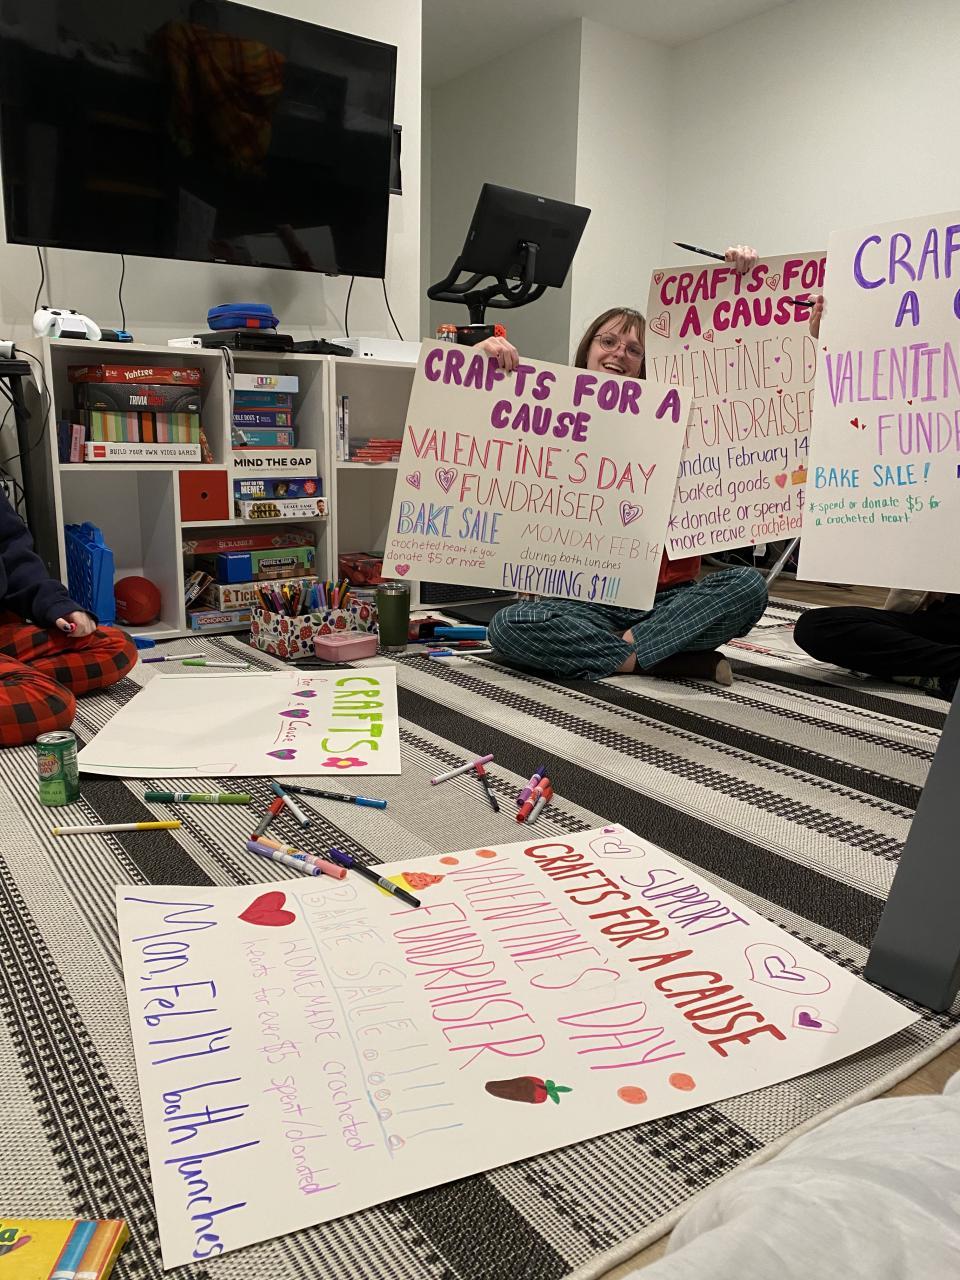 Yahtzee
TRIVIA
BUILD YOUR OWN VIDEO GAMES!
LIFE
MIND THE GAP
WHAT DO YOU MEME?
SCRABBLE
MINECRAFT
TICKET
MONOPOLY
CRAFTS FOR A
CAUSE
VALENTINE'S DAY
FUNDRAISER
BAKE SALE
crocheted heart if you
donate $5 or more
MONDAY FEB 14
during both lunches
EVERYTHING $1!!!
CRAFTS FOR
A CAUSE
VALENTINE'S D
FUNDRAISER
onday February 14
baked goods
*donate or spend $
more recive crocheted
CRAF
A C
VALENTIN
FUND
BAKE SALE!
*spend or donate $5 for
a crocheted heart
CRAFTS
for
a
Cause
CANADA
DRY
SUPPORT
CRAFTS FOR A CAUSE
VALENTINE'S DAY
FUNDRAISER
BAKE SALE!!!!
HOMEMADE crocheted
hearts for ever $5 spent/donated
Mon, Feb 14 both lunches